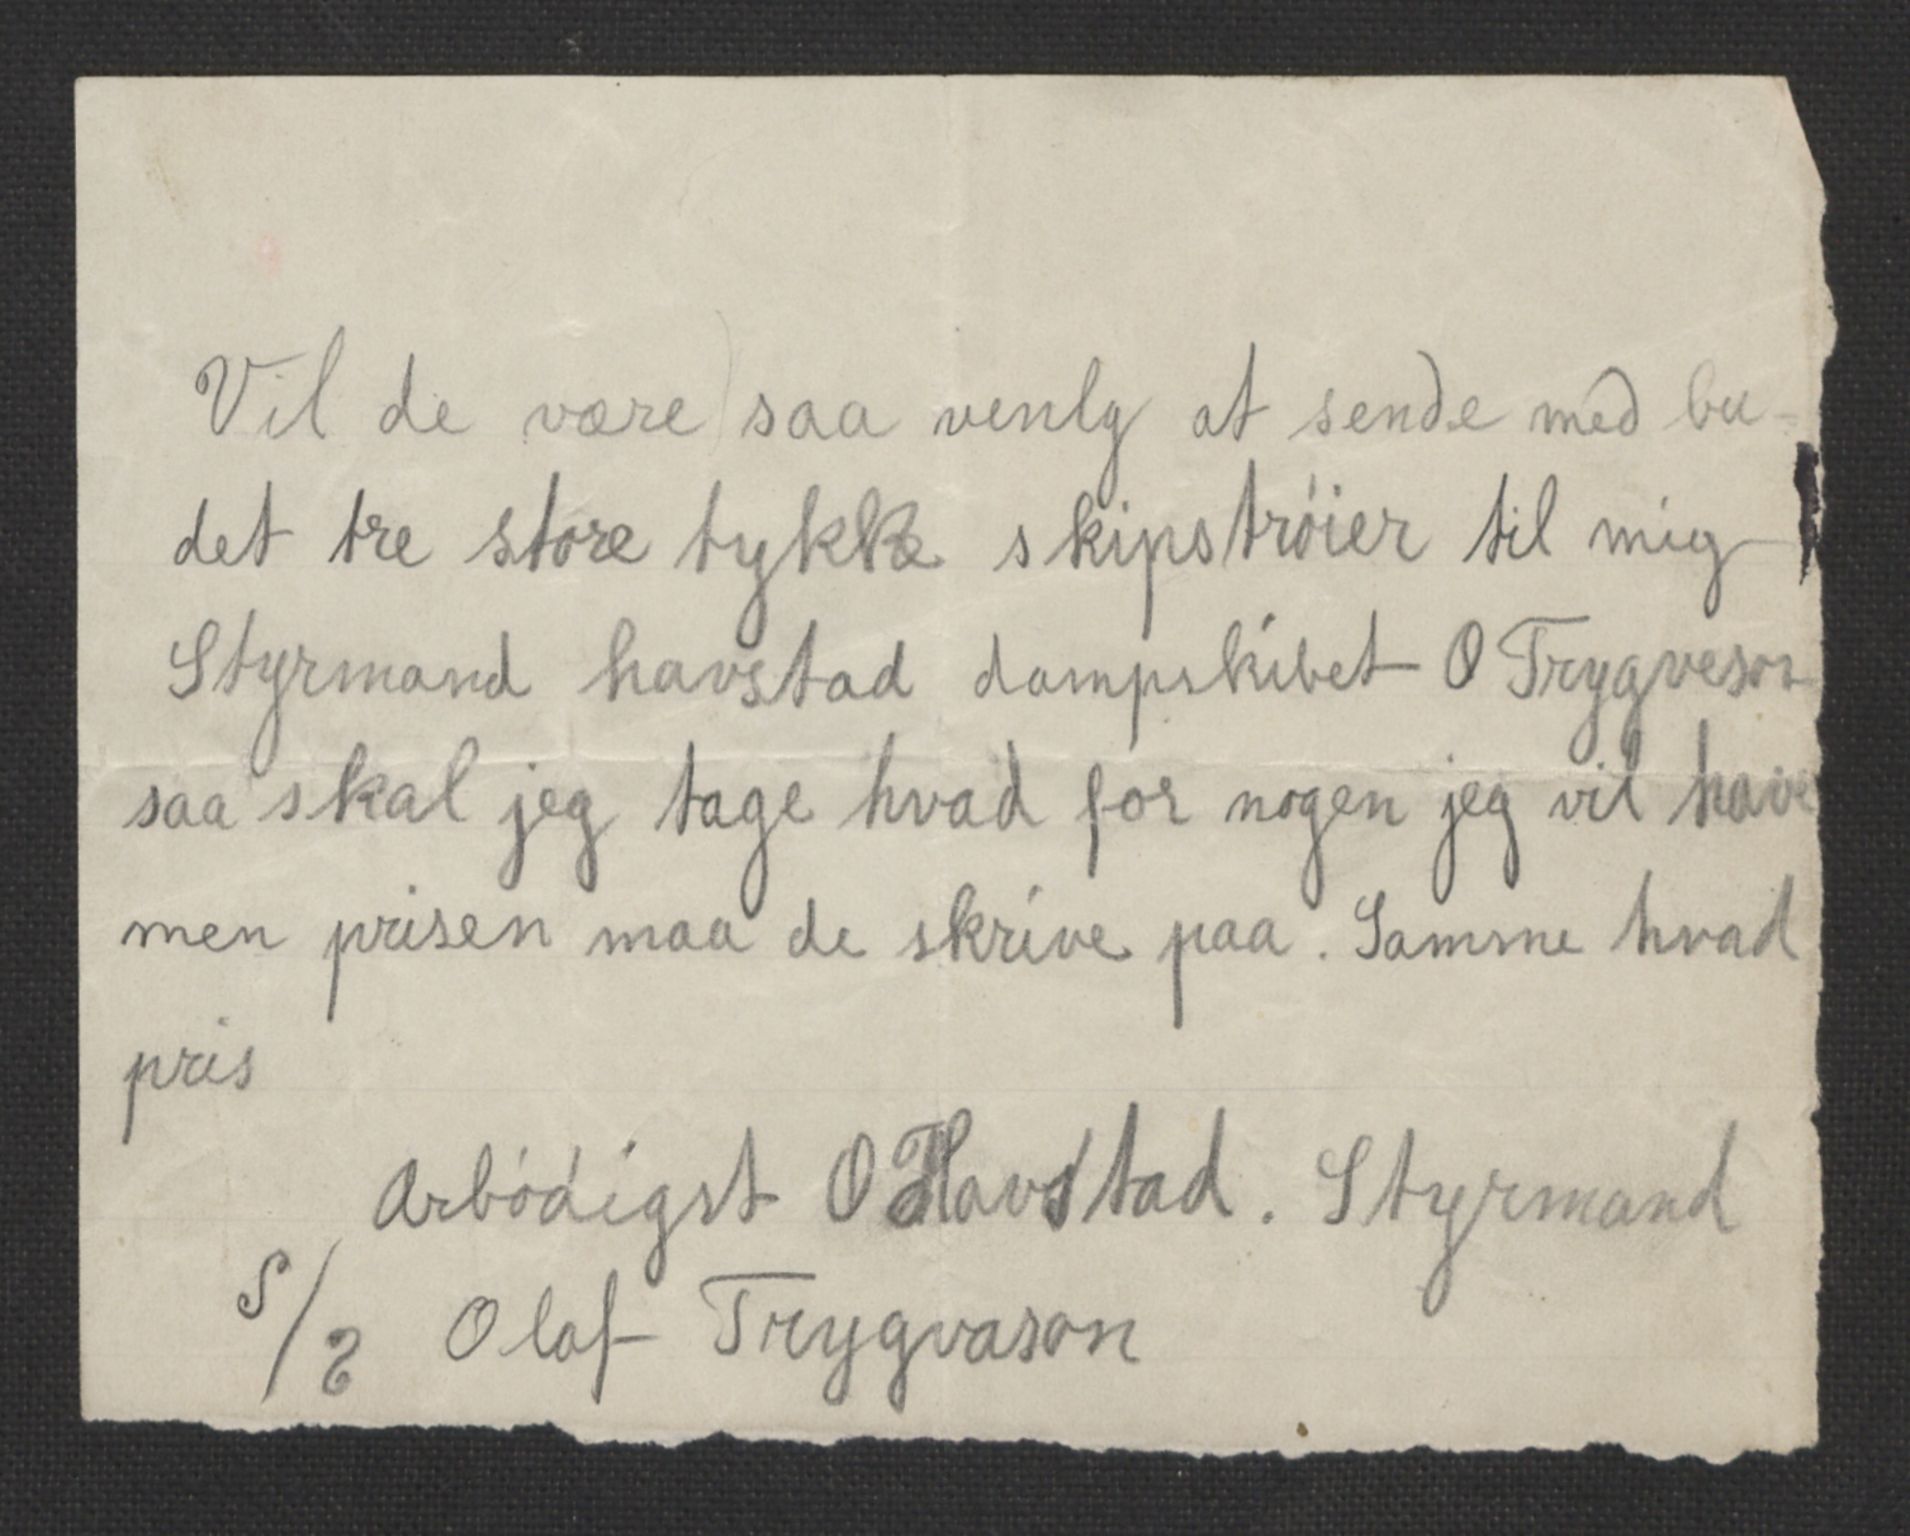 Vil de være saa venlg at sende med bu-
det tre store tykke skipstróier til mig
Styrmand havstad dampskibet O Trygveson
saa skal jeg tage hvad for nogen jeg vil have
men prisen maa de skrive paa. Samme hvad
pris
Arbódigst O Havstad. Styrmand
S/S Olaf Trygvason